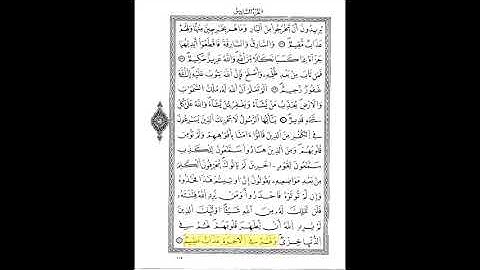 الجزء السادس
يُرِيدُونَ أَنْ يَخْرُجُوا مِنَ النَّارِ وَمَا هُمْ بِخَارِجِينَ مِنْهَا وَلَهُمْ
عَذَابٌ مُقِيمٌ وَالسَّارِقُ وَالسَّارِقَةُ فَاقْطَعُوا أَيْدِيَهُمَا
جَزَاءً بِمَا كَسَبَا نَكَالًا مِنَ اللَّهِ وَاللَّهُ عَزِيزٌ حَكِيمٌ
فَمَنْ تَابَ مِنْ بَعْدِ ظُلْمِهِ وَأَصْلَحَ فَإِنَّ اللَّهَ يَتُوبُ عَلَيْهِ إِنَّ اللَّهَ
غَفُورٌ رَحِيمٌ أَلَمْ تَعْلَمْ أَنَّ اللَّهَ لَهُ مُلْكُ السَّمَوَاتِ
وَالْأَرْضِ يُعَذِّبُ مَنْ يَشَاءُ وَيَغْفِرُ لِمَنْ يَشَاءُ وَاللَّهُ عَلَى كُلِّ
شَيْءٍ قَدِيرٌ يَا أَيُّهَا الرَّسُولُ لَا يَحْزُنْكَ الَّذِينَ يُسَارِعُونَ
فِي الْكُفْرِ مِنَ الَّذِينَ قَالُوا آمَنَّا بِأَفْوَاهِهِمْ وَلَمْ تُؤْمِنْ
قُلُوبُهُمْ وَمِنَ الَّذِينَ هَادُوا سَمَّاعُونَ لِلْكَذِبِ
سَمَّاعُونَ لِقَوْمٍ آخَرِينَ لَمْ يَأْتُوكَ يُحَرِّفُونَ الْكَلِمَ
مِنْ بَعْدِ مَوَاضِعِهِ يَقُولُونَ إِنْ أُوتِيتُمْ هَذَا فَخُذُوهُ
وَإِنْ لَمْ تُؤْتَوْهُ فَاحْذَرُوا وَمَنْ يُرِدِ اللَّهُ فِتْنَتَهُ
فَلَنْ تَمْلِكَ لَهُ مِنَ اللَّهِ شَيْئًا أُولَئِكَ الَّذِينَ
لَمْ يُرِدِ اللَّهُ أَنْ يُطَهِّرَ قُلُوبَهُمْ لَهُمْ فِي
الدُّنْيَا خِزْيٌ وَلَهُمْ فِي الْآخِرَةِ عَذَابٌ عَظِيمٌ